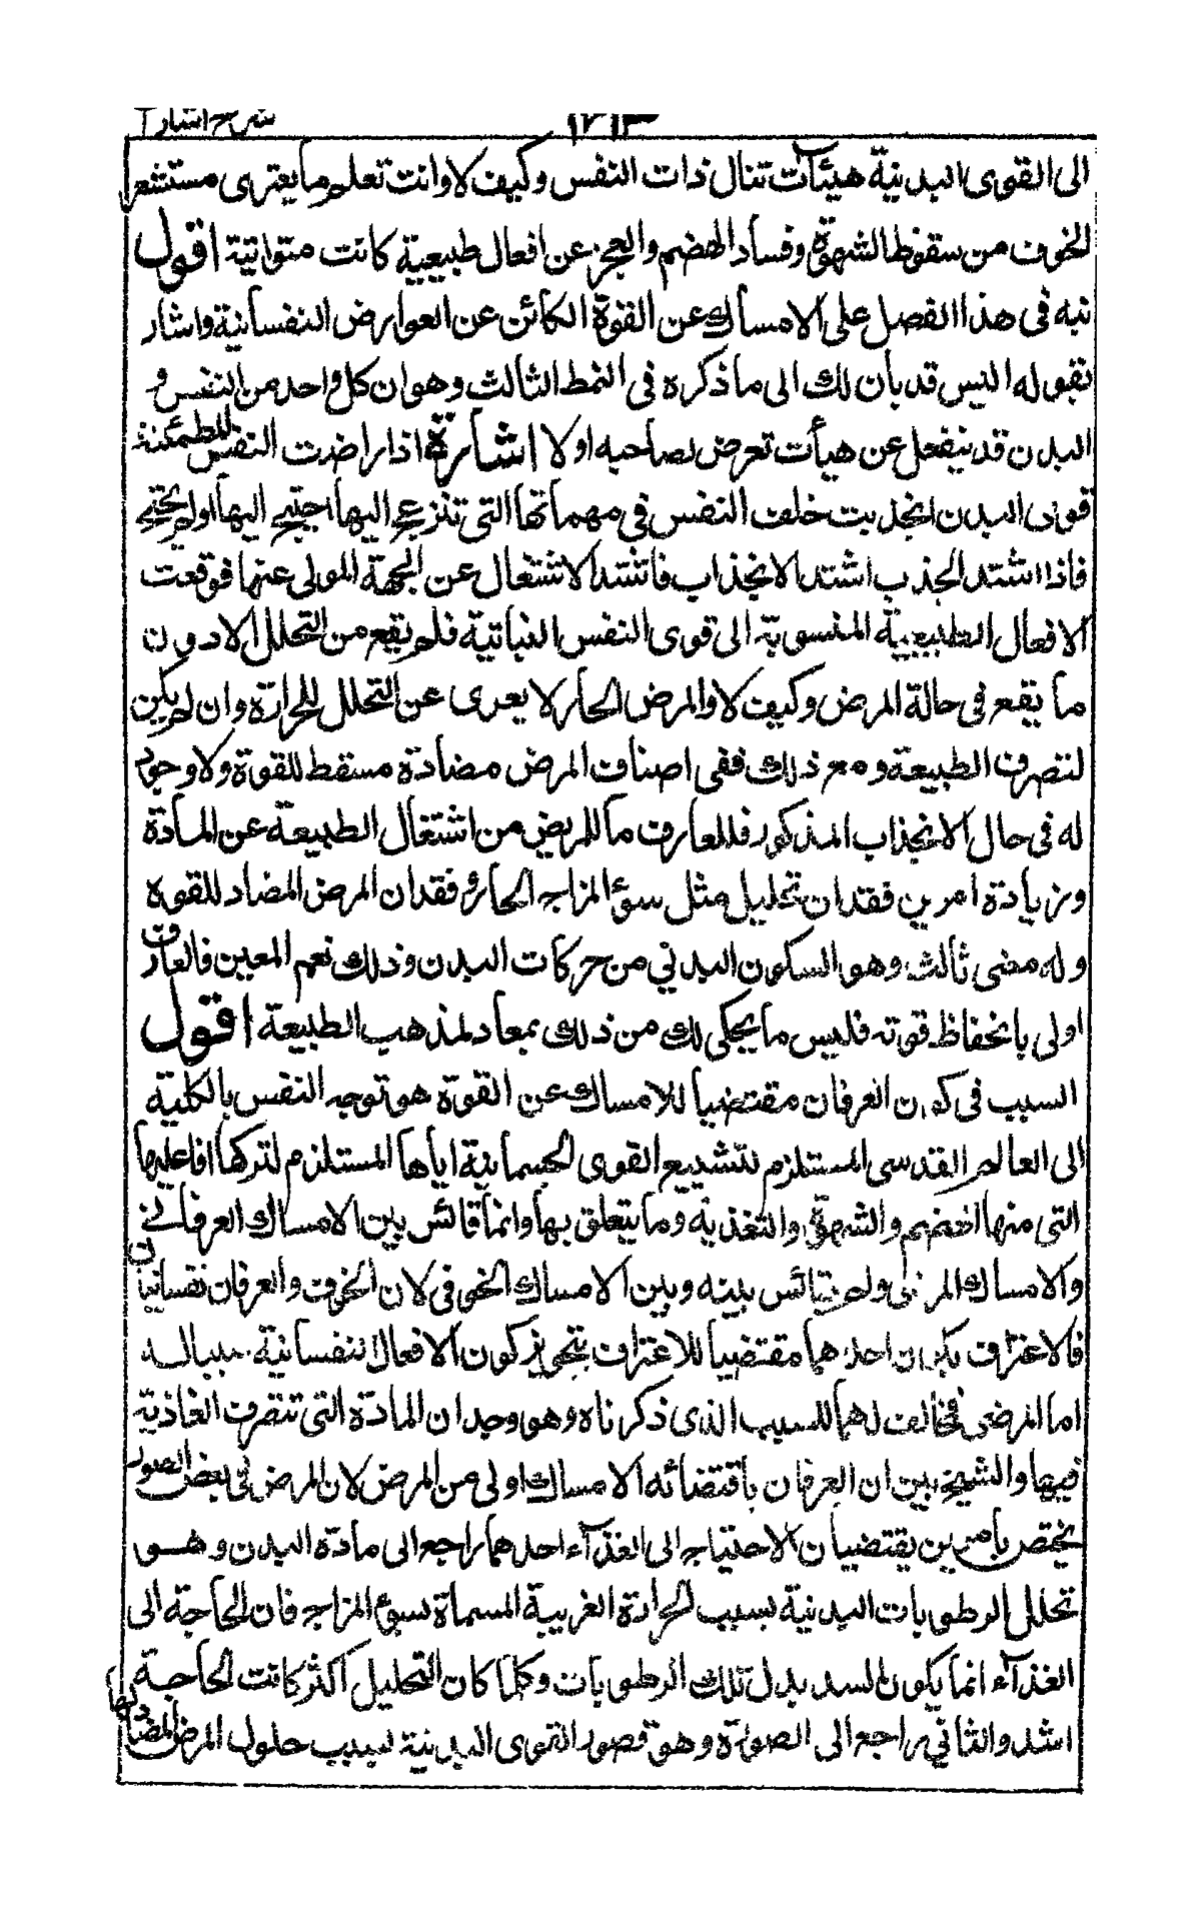 شرح اشارات
الى القوى البدنية هيئآت تنال ذات النفس وكيف لا وانت تعلم ما يعترى مستشعر
الخوف من سقوط الشهوة وفساد الهضم والعجز عن افعال طبيعية كانت متواتية اقول
نبه فى هذا الفصل على الامساك عن القوة الكائن عن العوارض النفسانية واشار
بقوله اليس قد بان لك الى ما ذكره فى النمط الثالث وهو ان كل واحد من النفس و
البدن قد ينفعل عن هيأت تعرض لصاحبه اولا اشارة اذا راضت النفس المطمئنة
قوى البدن انجذبت خلف النفس فى مهماتها التى تنزعج اليها احتيج اليها اولم يحتج
فاذا اشتد الجذب اشتد الانجذاب فاشتد الاشتغال عن الجهة المولى عنها فوقعت
الافعال الطبيعية المنسوبة الى قوى النفس النباتية فلم يقع من التحلل الا دون
ما يقع فى حالة المرض وكيف لا والمرض الحار لا يعرى عن التحلل للحرارة وان لم يكن
لتصرف الطبيعة ومع ذلك ففى اصناف المرض مضادة مسقط للقوة ولا وجود
له فى حال الانجذاب المذكور فللعارف ما للمريض من اشتغال الطبيعة عن المادة
وزيادة امرين فقدان تحليل مثل سوء المزاج الحار وفقدان المرض المضاد للقوة
وله معنى ثالث وهو السكون البدني من حركات البدن وذلك نعم المعين فالعارف
اولى بانحفاظ قوته فليس ما يحكى لك من ذلك بمعاد لمذهب الطبيعة اقول
السبب فى كون العرفان مقتضيا للامساك عن القوة هو توجه النفس بالكلية
الى العالم القدسى المستلزم لتشييع القوى الجسمانية اياها المستلزم لتركها افاعليها
التى منها الهضم والشهوة والتغذية وما يتعلق بها وانما قائس بين الامساك العرفانى
والامساك المرضى ولم يقائس بينه وبين الامساك الخوفى لان الخوف والعرفان نفسانيان
فالاعتراف بكون احدهما مقتضيا للاعتراف بتجويز كون الافعال النفسانية سببا له
اما المرضى فمخالف لهما للسبب الذى ذكرناه وهو وجدان المادة التى تتصرف الغاذية
فيها والشيخ بين ان العرفان باقتضائه الامساك اولى من المرض لان المرض فى بعض الصور
يختص بامرين يقتضيان الاحتياج الى الغذآء احدهما راجع الى مادة البدن وهو
تحلل الرطوبات البدنية بسبب الحرارة الغريبة المسماة بسوء المزاج فان الحاجة الى
الغذآء انما يكون لسد بدل تلك الرطوبات وكلما كان التحليل اكثر كانت الحاجة
اشد والثانى راجع الى الصورة وهو قصور القوى البدنية بسبب حلول المرض المضاد لها